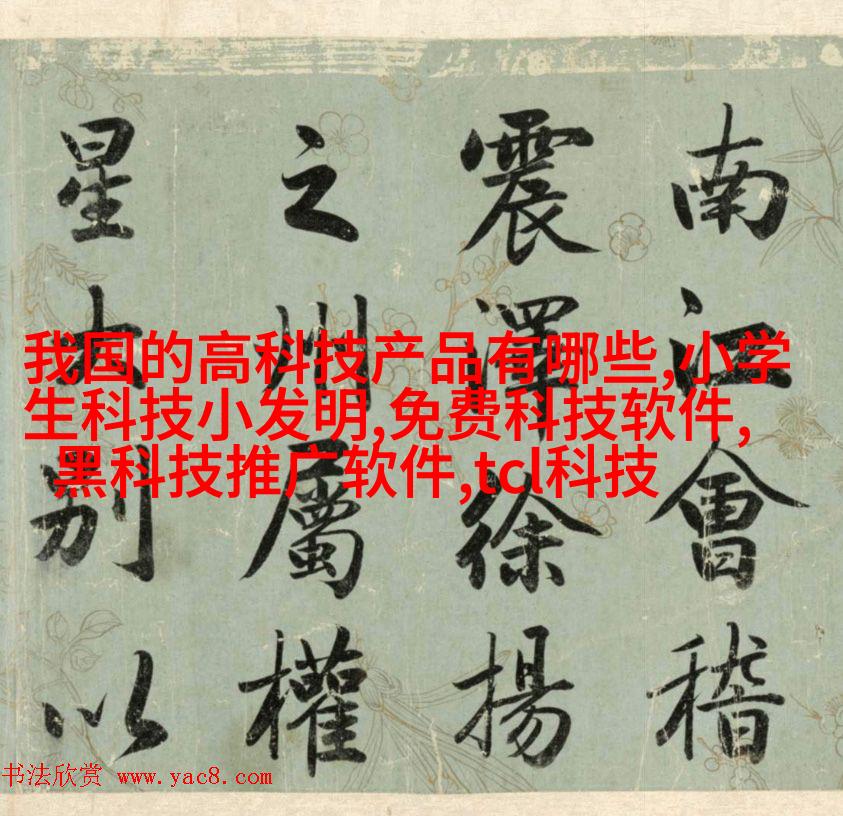 南江會稽
震澤徐揚
之州屬權
星别以
我国的高科技产品有哪些,小学
生科技小发明,免费科技软件,
黑科技推广软件,tcl科技
书法欣赏 www.yac8.com